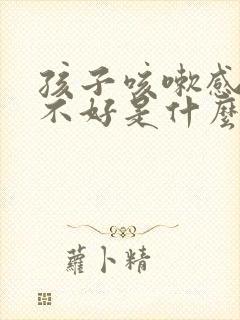 孩子咳嗽感
不好是什麼
蘿卜精